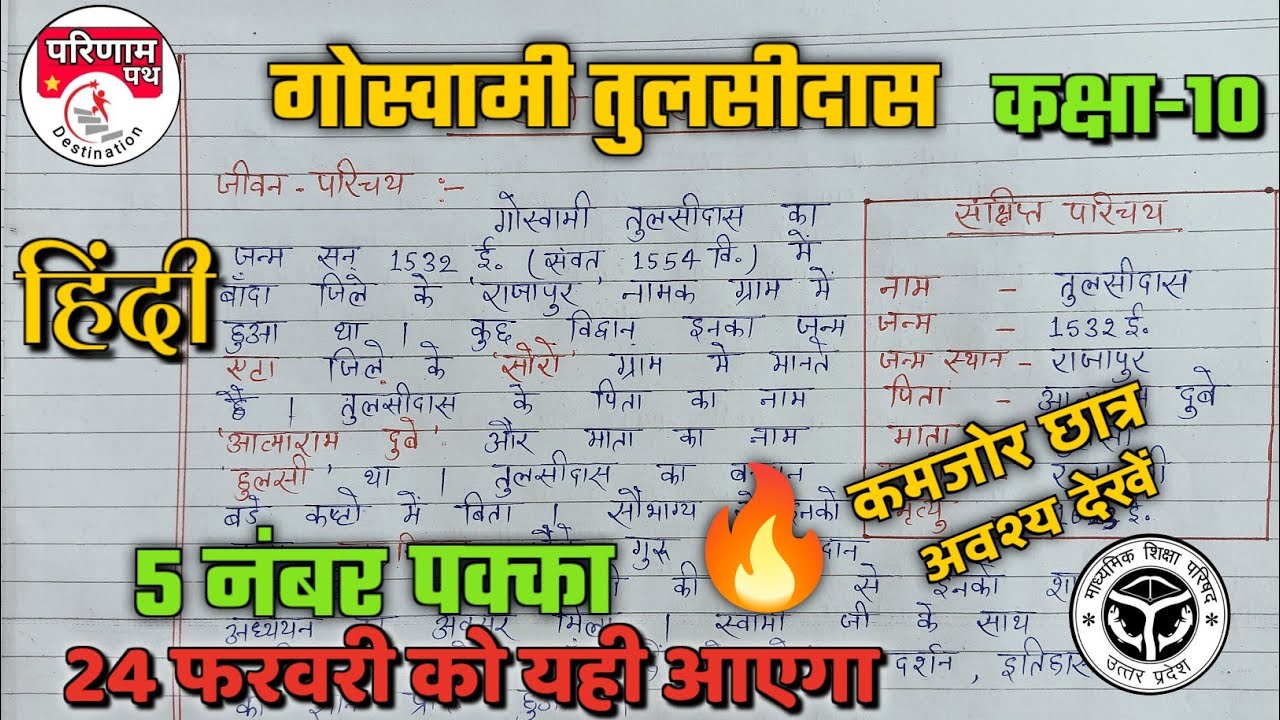 परिणाम
पथ
Destination
गोस्वामी तुलसीदास
कक्षा-10
हिंदी
जीवन-परिचय :-
गोस्वामी तुलसीदास का
जन्म सन् 1532 ई. (संवत 1554 वि.) में
बाँदा जिले के 'राजापुर' नामक ग्राम में
हुआ था । कुछ विद्वान् इनका जन्म
एटा जिले के 'सोरों' ग्राम मे मानते
हैं । तुलसीदास के पिता का नाम
'आत्माराम दुबे' और माता का नाम
'हुलसी' था । तुलसीदास का
बडे कष्टो में बिता । सौभाग्य इनको
गुरू
की से इनको
अध्ययन अवसर मिला । स्वामी जी के साथ
दर्शन , इतिहास
संक्षिप्त परिचय
नाम - तुलसीदास
जन्म - 1532 ई.
जन्म स्थान - राजापुर
पिता - दुबे
माता
ई.
कमजोर छात्र
अवश्य देखें
5 नंबर पक्का
24 फरवरी को यही आएगा
माध्यमिक शिक्षा परिषद
उत्तर प्रदेश